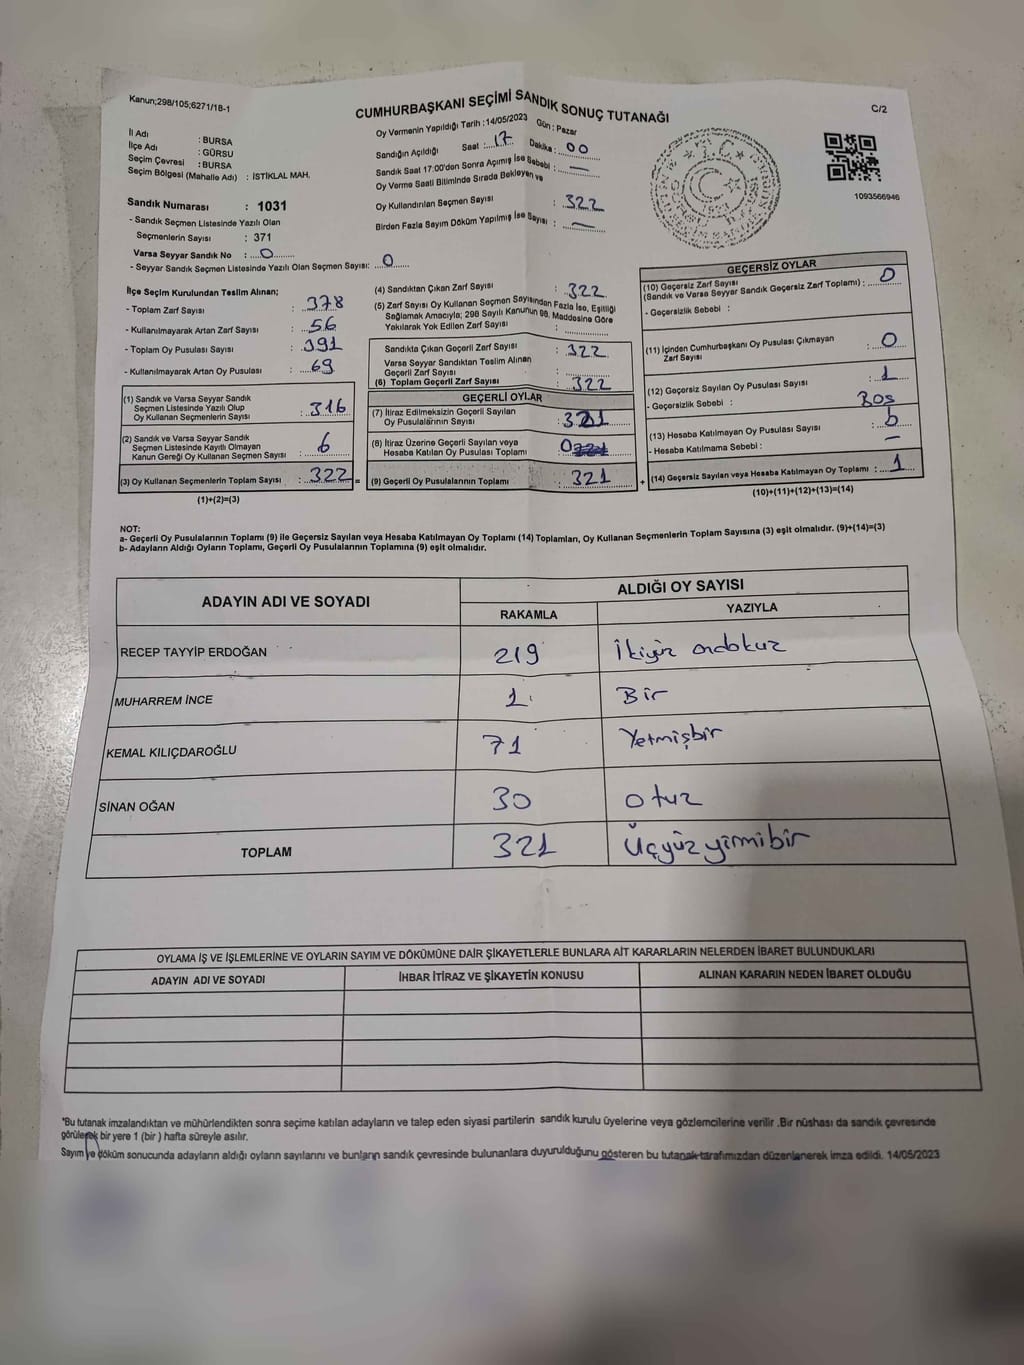 Kanun;298/105;6271/18-1
CUMHURBAŞKANI SEÇİMİ SANDIK SONUÇ TUTANAĞI
C/2
İl Adı : BURSA
İlçe Adı : GÜRSU
Seçim Çevresi : BURSA
Seçim Bölgesi (Mahalle Adı) : İSTİKLAL MAH.
Oy Vermenin Yapıldığı Tarih :14/05/2023 Gün : Pazar
Sandığın Açıldığı Saat : 17 Dakika : 00
Sandık Saat 17:00'den Sonra Açımış İse Sebebi : —
Oy Verme Saati Bitiminde Sırada Bekleyen ve
Oy Kullandırılan Seçmen Sayısı : 322
Birden Fazla Sayım Döküm Yapılmış İse Sayısı : —
1093566946
Sandık Numarası : 1031
- Sandık Seçmen Listesinde Yazılı Olan
Seçmenlerin Sayısı : 371
Varsa Seyyar Sandık No : 0
- Seyyar Sandık Seçmen Listesinde Yazılı Olan Seçmen Sayısı: 0
İlçe Seçim Kurulundan Teslim Alınan;
- Toplam Zarf Sayısı : 378
- Kullanılmayarak Artan Zarf Sayısı : 56
- Toplam Oy Pusulası Sayısı : 391
- Kullanılmayarak Artan Oy Pusulası : 69
(1) Sandık ve Varsa Seyyar Sandık
Seçmen Listesinde Yazılı Olup
Oy Kullanan Seçmenlerin Sayısı : 316
(2) Sandık ve Varsa Seyyar Sandık
Seçmen Listesinde Kayıtlı Olmayan
Kanun Gereği Oy Kullanan Seçmen Sayısı : 6
(3) Oy Kullanan Seçmenlerin Toplam Sayısı : 322 =
(1)+(2)=(3)
(4) Sandıktan Çıkan Zarf Sayısı : 322
(5) Zarf Sayısı Oy Kullanan Seçmen Sayısından Fazla İse, Eşitliği
Sağlamak Amacıyla; 298 Sayılı Kanunun 98. Maddesine Göre
Yakılarak Yok Edilen Zarf Sayısı :
Sandıkta Çıkan Geçerli Zarf Sayısı : 322
Varsa Seyyar Sandıktan Teslim Alınan
Geçerli Zarf Sayısı :
(6) Toplam Geçerli Zarf Sayısı : 322
GEÇERLİ OYLAR
(7) İtiraz Edilmeksizin Geçerli Sayılan
Oy Pusulalarının Sayısı : 321
(8) İtiraz Üzerine Geçerli Sayılan veya
Hesaba Katılan Oy Pusulası Toplamı : 0
(9) Geçerli Oy Pusulalarının Toplamı : 321 +
GEÇERSİZ OYLAR
(10) Geçersiz Zarf Sayısı
(Sandık ve Varsa Seyyar Sandık Geçersiz Zarf Toplamı) : 0
- Geçersizlik Sebebi :
(11) İçinden Cumhurbaşkanı Oy Pusulası Çıkmayan
Zarf Sayısı : 0
(12) Geçersiz Sayılan Oy Pusulası Sayısı : 1
- Geçersizlik Sebebi : Boş
(13) Hesaba Katılmayan Oy Pusulası Sayısı :
- Hesaba Katılmama Sebebi : —
(14) Geçersiz Sayılan veya Hesaba Katılmayan Oy Toplamı : 1
(10)+(11)+(12)+(13)=(14)
NOT:
a- Geçerli Oy Pusulalarının Toplamı (9) ile Geçersiz Sayılan veya Hesaba Katılmayan Oy Toplamı (14) Toplamları, Oy Kullanan Seçmenlerin Toplam Sayısına (3) eşit olmalıdır. (9)+(14)=(3)
b- Adayların Aldığı Oyların Toplamı, Geçerli Oy Pusulalarının Toplamına (9) eşit olmalıdır.
ADAYIN ADI VE SOYADI ALDIĞI OY SAYISI
RAKAMLA YAZIYLA
RECEP TAYYİP ERDOĞAN 219 İkiyüz ondokuz
MUHARREM İNCE 1 Bir
KEMAL KILIÇDAROĞLU 71 Yetmişbir
SİNAN OĞAN 30 Otuz
TOPLAM 321 Üçyüz yirmibir
OYLAMA İŞ VE İŞLEMLERİNE VE OYLARIN SAYIM VE DÖKÜMÜNE DAİR ŞİKAYETLERLE BUNLARA AİT KARARLARIN NELERDEN İBARET BULUNDUKLARI
ADAYIN ADI VE SOYADI İHBAR İTİRAZ VE ŞİKAYETİN KONUSU ALINAN KARARIN NEDEN İBARET OLDUĞU
*Bu tutanak imzalandıktan ve mühürlendikten sonra seçime katılan adayların ve talep eden siyasi partilerin sandık kurulu üyelerine veya gözlemcilerine verilir .Bir nüshası da sandık çevresinde
görülecek bir yere 1 (bir ) hafta süreyle asılır.
Sayım ve döküm sonucunda adayların aldığı oyların sayılarını ve bunların sandık çevresinde bulunanlara duyurulduğunu gösteren bu tutanak tarafımızdan düzenlenerek imza edildi. 14/05/2023